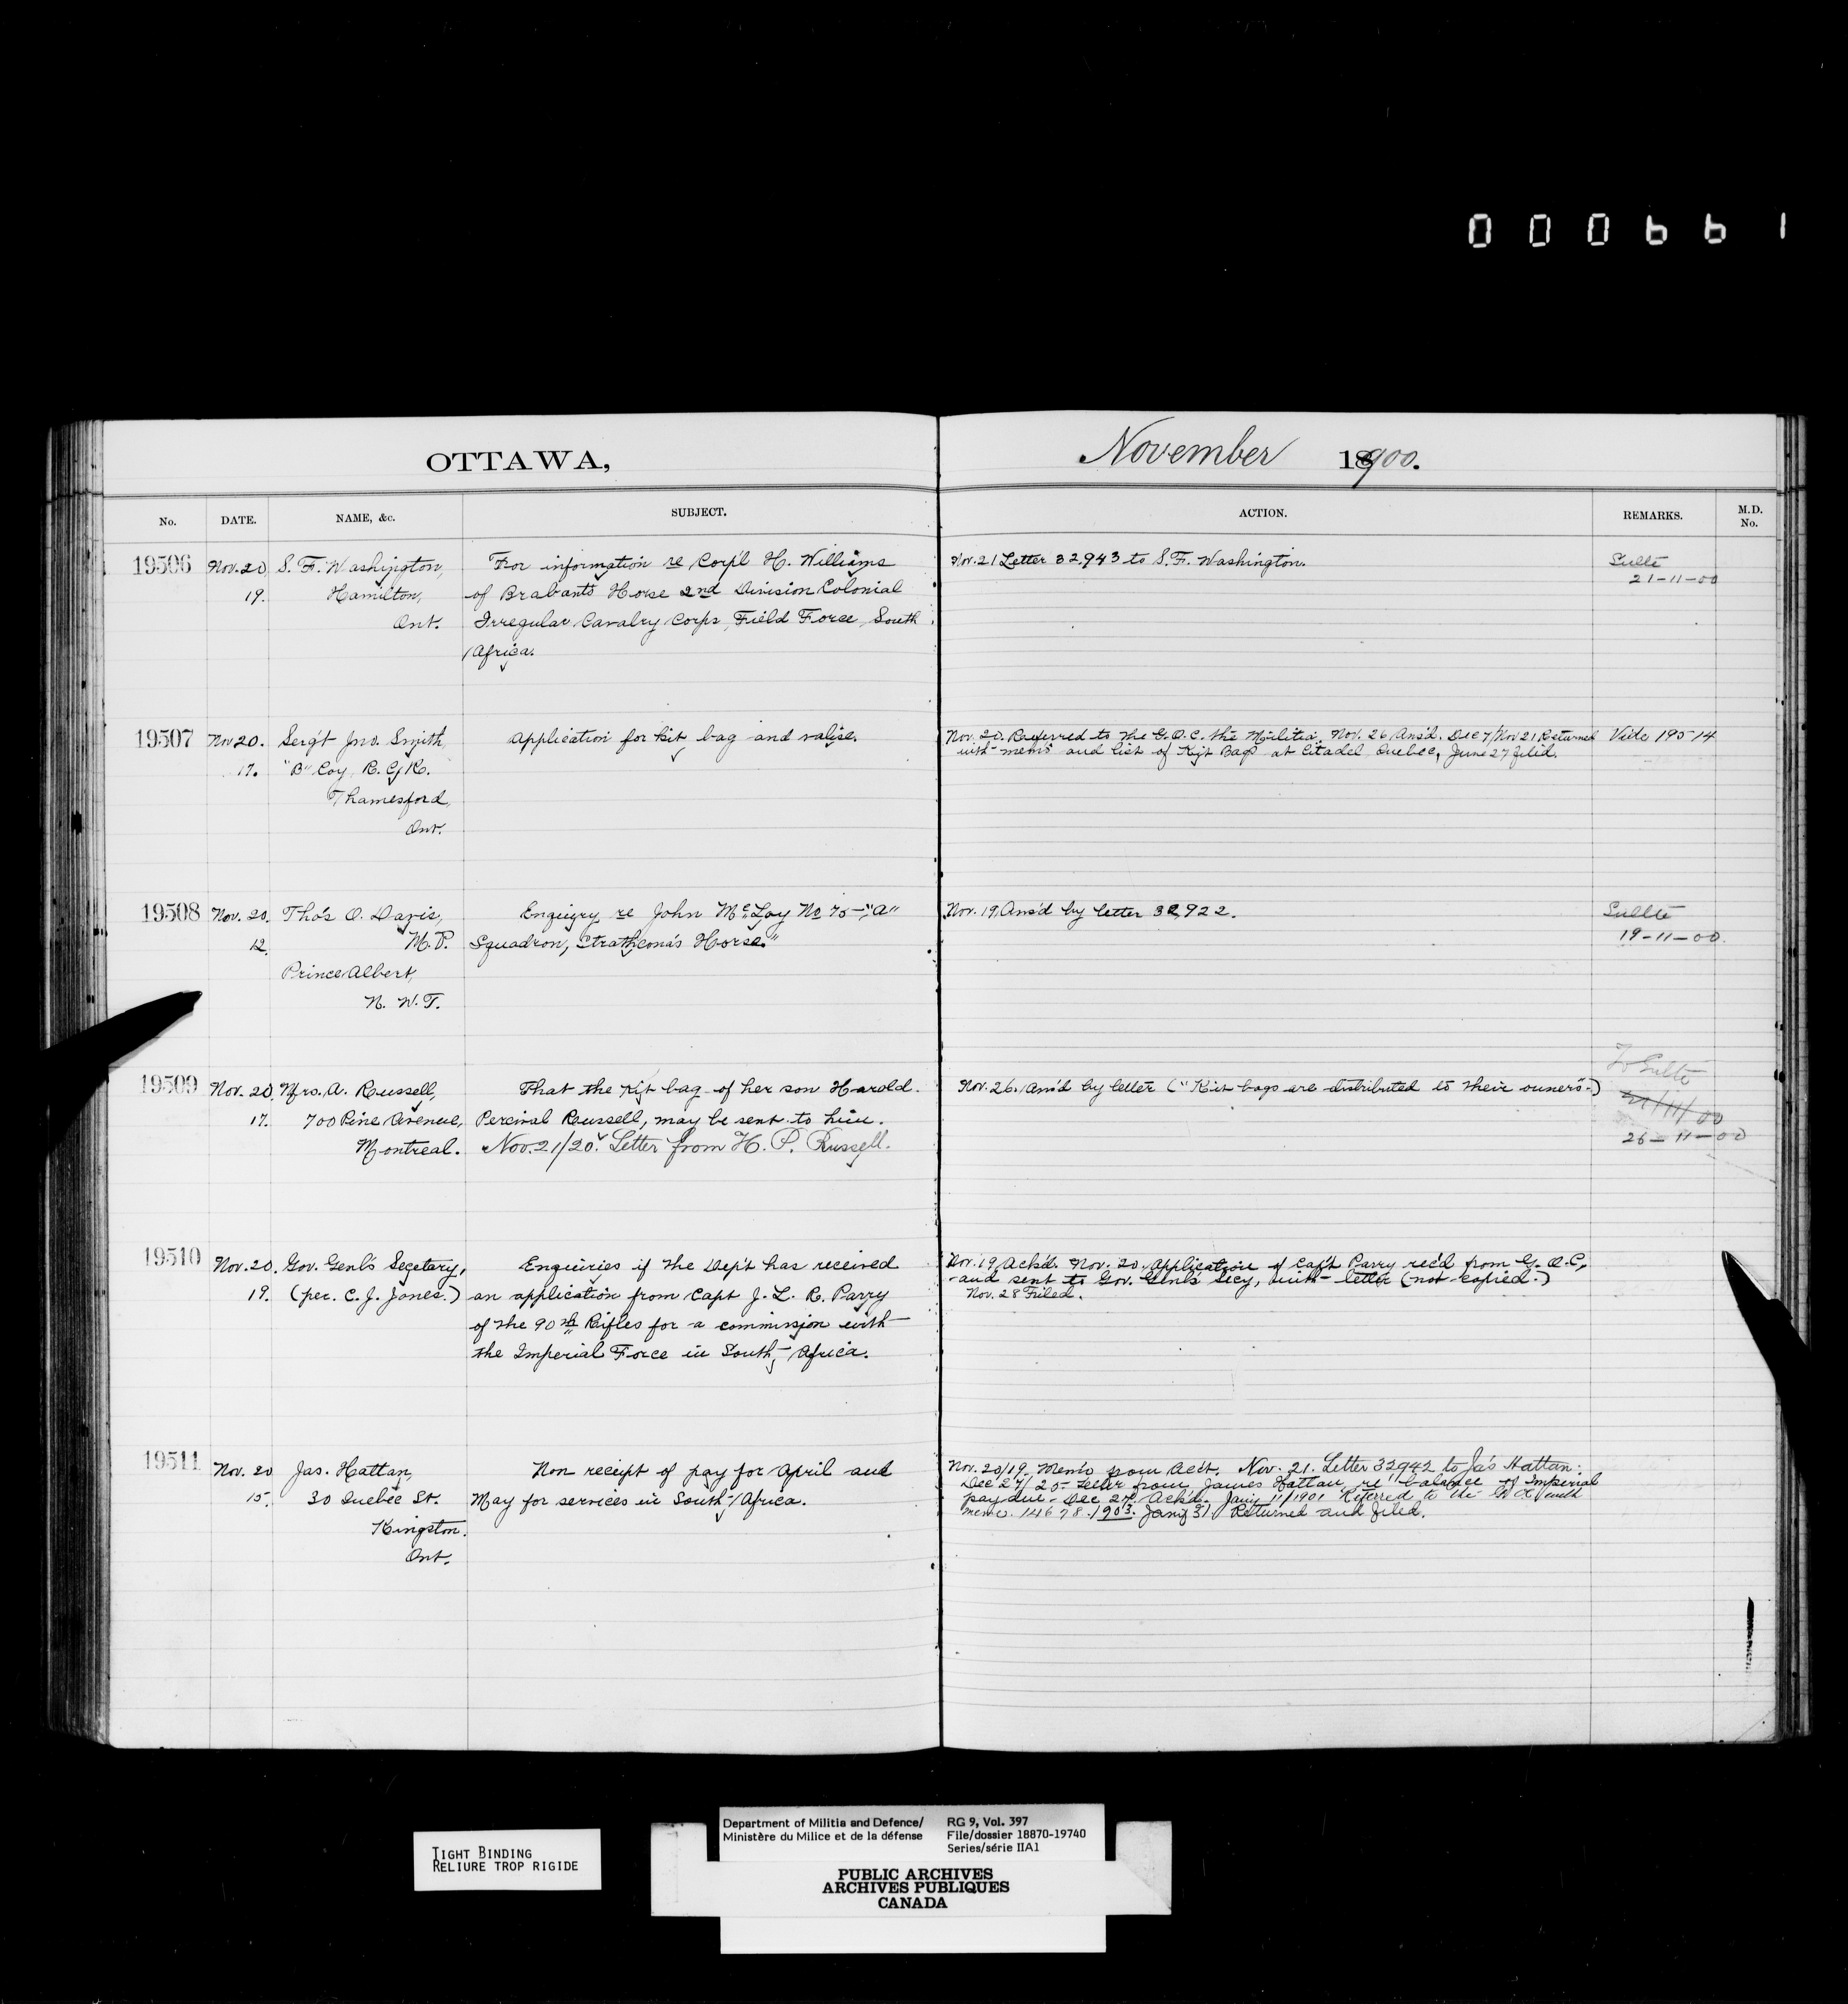 000661
OTTAWA, November 1900.
No. DATE. NAME, &c. SUBJECT. ACTION. REMARKS. M.D. No.
19506 Nov. 20 S. F. Washington, For information re Corp'l H. Williams Nov. 21 Letter 32943 to S. F. Washington. Sulte
19. Hamilton, of Brabant's Horse 2nd Division Colonial 21-11-00
Ont. Irregular Cavalry Corps, Field Force, South
Africa.
19507 Nov 20. Serg't Jno. Smith, Application for kit bag and valise. Nov. 20. Referred to the G.O.C. the Militia. Nov. 26 Ans'd. Dec 7/Nov 21 Returned Vide 19514
17. "B" Coy, R.C.R. with mem'o and list of Kit Bags at Citadel Quebec, June 27 filed.
Thamesford,
Ont.
19508 Nov. 20. Tho's O. Davis, Enquiry re John McLoy No 75-"A" Nov. 19, Ans'd by letter 32,922. Sulte
12. M.P. Squadron, Strathcona's Horse." 19-11-00
Prince Albert,
N. W. T.
To Sulte
19509 Nov. 20 Mrs. A. Russell, That the kit bag of her son Harold Nov. 26. Ans'd by letter ("Kit bags are distributed to their owners.)
17. 700 Pine Avenue, Percival Russell, may be sent to him. 21/11/00
Montreal. Nov. 21/20. Letter from H. P. Russell. 26-11-00
19510 Nov. 20. Gov. Genl's Secretary, Enquiries if the Dep't has received Nov. 19, Ack'd. Nov. 20. Application of Cap't Parry rec'd from G.O.C.,
19. (per. C. J. Jones.) an application from Capt J. L. R. Parry and sent to Gov. Genl's Secy, with letter (not copied.)
of the 90th Rifles for a commission with Nov. 28 Filed.
the Imperial Force in South Africa.
19511 Nov. 20 Jas. Hattan, Non receipt of pay for April and Nov. 20/19. Mem'o from Acct. Nov. 21. Letter 32942 to Ja's Hattan.
15. 30 Quebec St. May for services in South Africa. Dec 27/20 Letter from James Hattan re balance of Imperial
Kingston. pay due. Dec 27. Ack'd. Jan'y 11/1901 Referred to the with
Ont. memo. 14678. 1903. Jan'y 31. Returned and filed.
TIGHT BINDING
RELIURE TROP RIGIDE
Department of Militia and Defence/
Ministère du Milice et de la défense
RG 9, Vol. 397
File/dossier 18870-19740
Series/série IIA1
PUBLIC ARCHIVES
ARCHIVES PUBLIQUES
CANADA